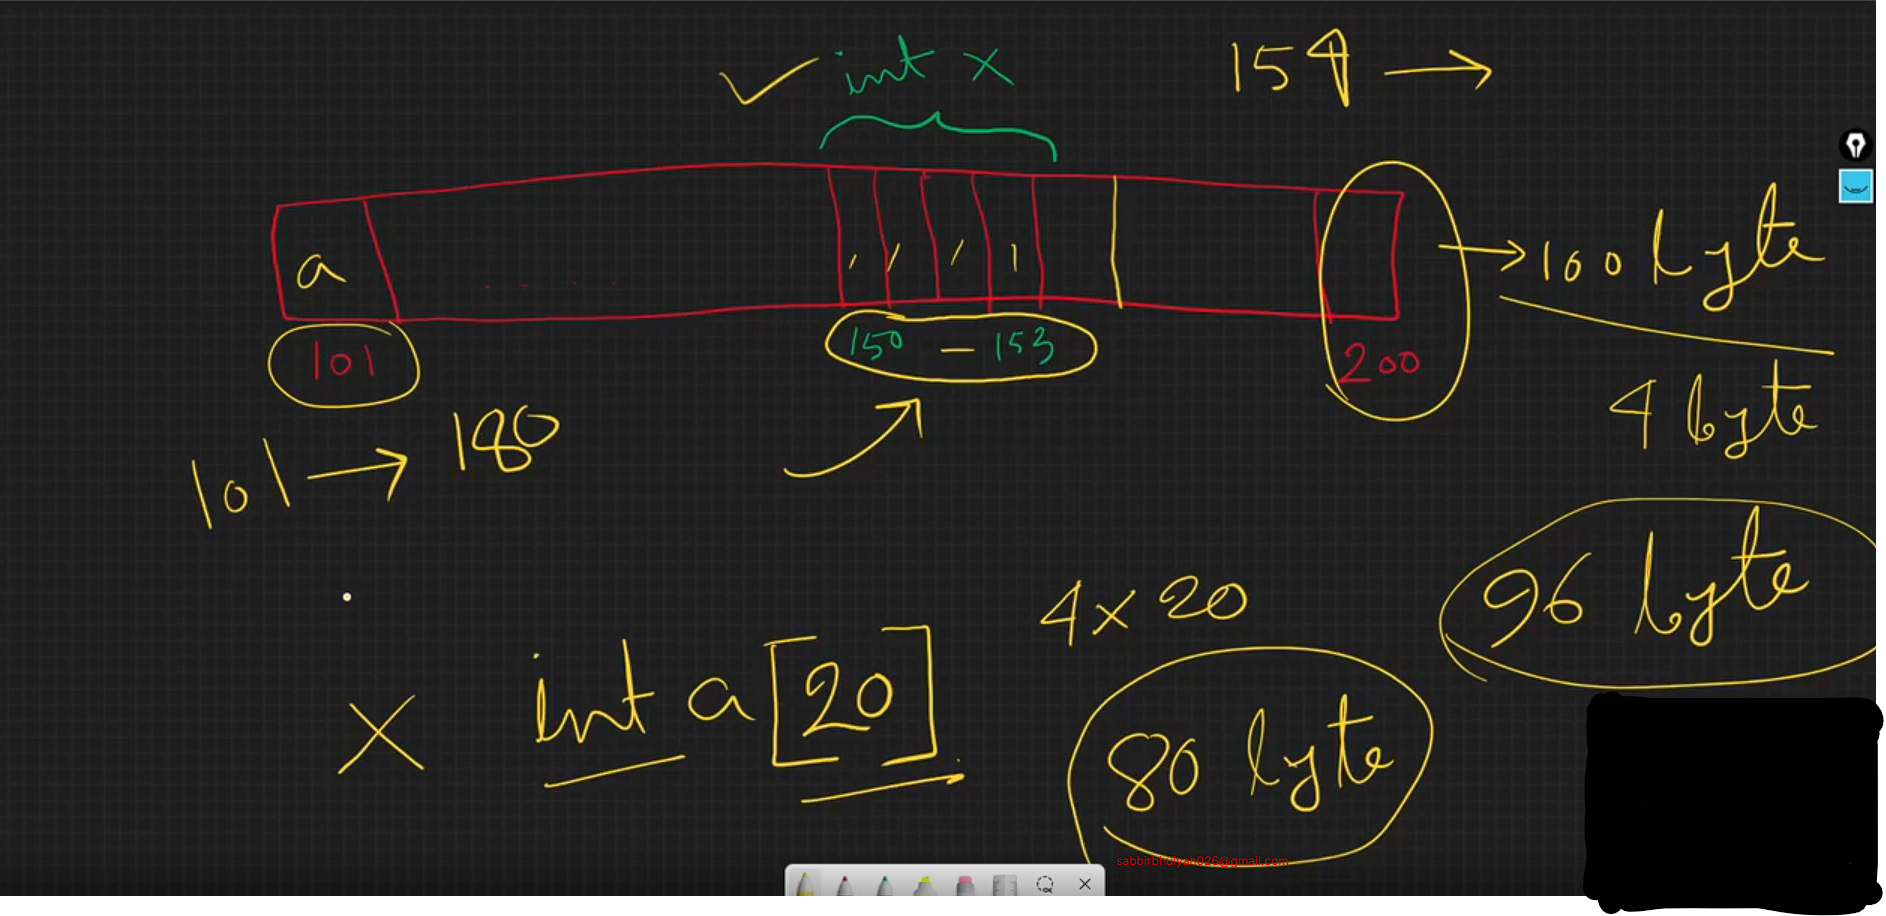 int x
154 →
a
100 byte
150 — 153
101
200
4 byte
101 → 180
96 byte
4 x 20
int a [20]
80 byte
sabbirbhuiyan026@gmail.com